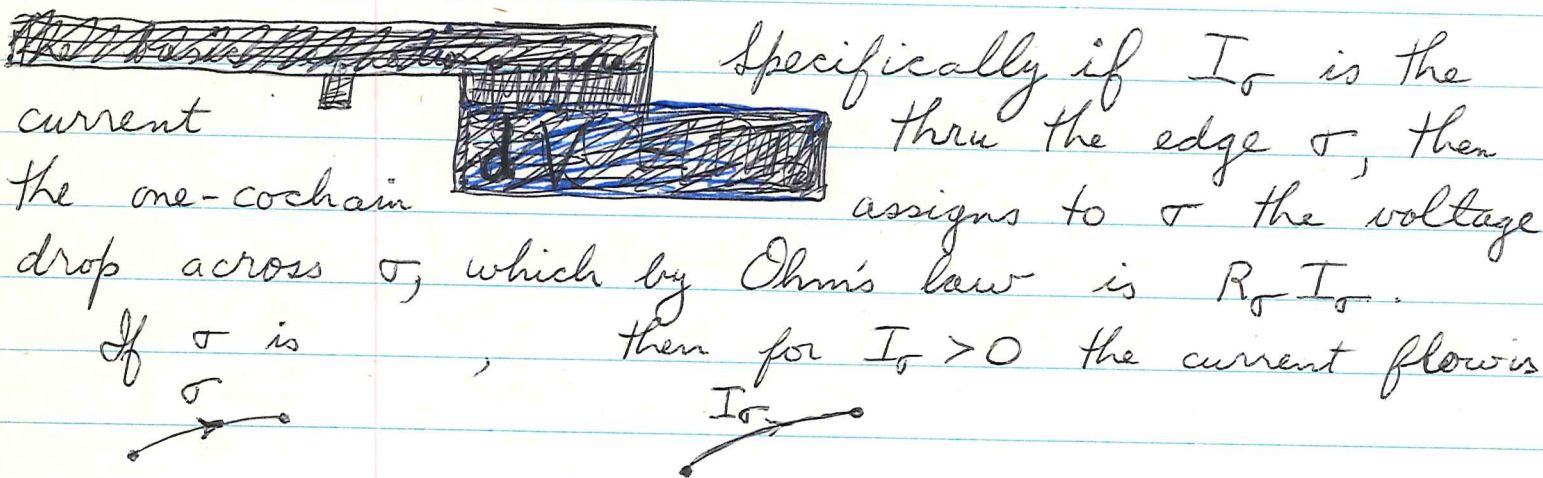 Specifically if I_σ is the
current thru the edge σ, then
the one-cochain assigns to σ the voltage
drop across σ, which by Ohm's law is R_σ I_σ.
If σ is , then for I_σ > 0 the current flow is
σ I_σ